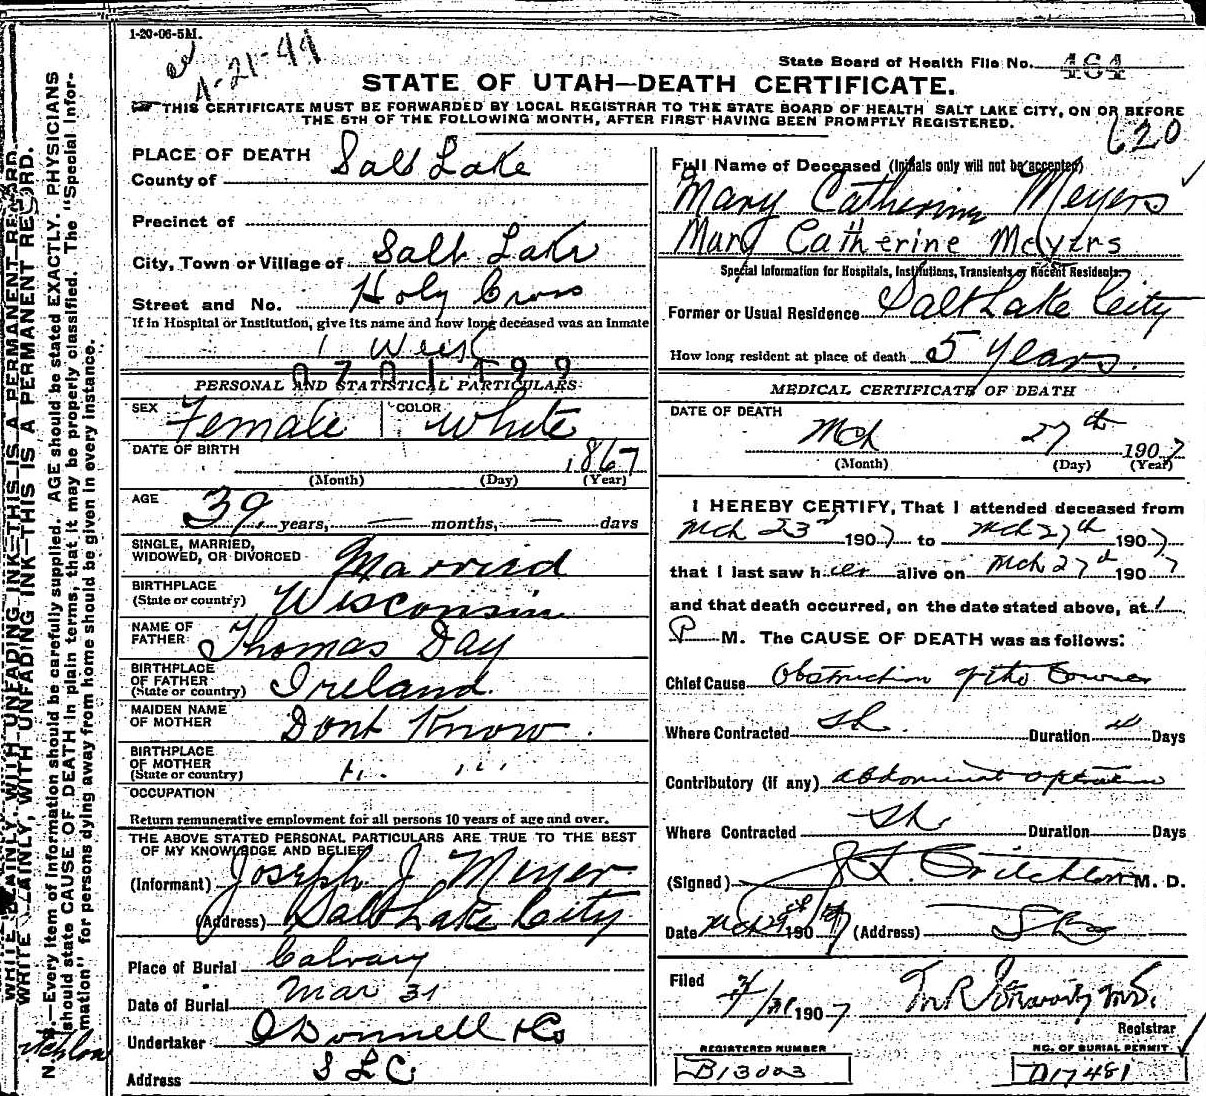 1-20-06-5M.
4-21-44
State Board of Health File No. 464
STATE OF UTAH—DEATH CERTIFICATE.
THIS CERTIFICATE MUST BE FORWARDED BY LOCAL REGISTRAR TO THE STATE BOARD OF HEALTH SALT LAKE CITY, ON OR BEFORE
THE 5TH OF THE FOLLOWING MONTH, AFTER FIRST HAVING BEEN PROMPTLY REGISTERED.
620
PLACE OF DEATH
County of Salt Lake
Precinct of
City, Town or Village of Salt Lake
Street and No. Holy Cross
If in Hospital or Institution, give its name and how long deceased was an Inmate
1 Week
PERSONAL AND STATISTICAL PARTICULARS
SEX Female COLOR White
DATE OF BIRTH 1867
(Month) (Day) (Year)
AGE 39 years, — months, — days
SINGLE, MARRIED,
WIDOWED, OR DIVORCED Married
BIRTHPLACE
(State or country) Wisconsin
NAME OF
FATHER Thomas Day
BIRTHPLACE
OF FATHER
(State or country) Ireland
MAIDEN NAME
OF MOTHER Dont Know
BIRTHPLACE
OF MOTHER
(State or country) " "
OCCUPATION
Return remunerative employment for all persons 10 years of age and over.
THE ABOVE STATED PERSONAL PARTICULARS ARE TRUE TO THE BEST
OF MY KNOWLEDGE AND BELIEF
(Informant) Joseph J. Meyer
(Address) Salt Lake City
Place of Burial Calvary
Date of Burial Mar 31
Undertaker O'Donnell & Co
Address S L C
Full Name of Deceased (Initials only will not be accepted)
Mary Catherine Meyers
Mary Catherine Meyers
Special Information for Hospitals, Institutions, Transients or Recent Residents.
Former or Usual Residence Salt Lake City
How long resident at place of death 5 Years.
MEDICAL CERTIFICATE OF DEATH
DATE OF DEATH
Mch 27th 1907
(Month) (Day) (Year)
I HEREBY CERTIFY, That I attended deceased from
Mch 23rd 1907 to Mch 27th 1907
that I last saw her alive on Mch 27th 1907
and that death occurred, on the date stated above, at 1
P M. The CAUSE OF DEATH was as follows:
Chief Cause Obstruction of the bowels
Where Contracted SL. Duration Days
Contributory (if any) abdominal operation
Where Contracted SL. Duration Days
(Signed) J. F. Critchlow M. D.
Date Mch 29th 1907 (Address) SLC
Filed 3/31 1907
Registrar
REGISTERED NUMBER
B13003
NO. OF BURIAL PERMIT
D17481
WRITE PLAINLY, WITH UNFADING INK—THIS IS A PERMANENT RECORD.
WRITE PLAINLY, WITH UNFADING INK—THIS IS A PERMANENT RECORD.
N. B.—Every item of information should be carefully supplied. AGE should be stated EXACTLY. PHYSICIANS
should state CAUSE OF DEATH in plain terms, that it may be properly classified. The "Special Infor-
mation" for persons dying away from home should be given in every instance.